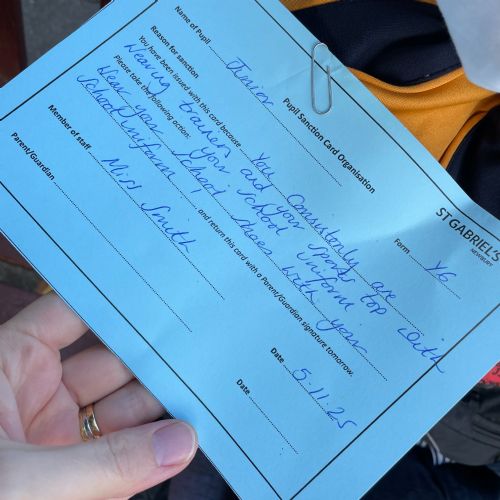 ST GABRIEL'S
NEWBURY
Pupil Sanction Card Organisation
Name of Pupil Junior Form Y6
Reason for sanction
You have been issued with this card because You consistently are
Wearing trainers and your sports top with
your School Uniform
Please take the following action:
Wear your School shoes with your
School Uniform and return this card with a Parent/Guardian signature tomorrow.
Member of staff Miss Smith Date 5.11.25
Parent/Guardian Date